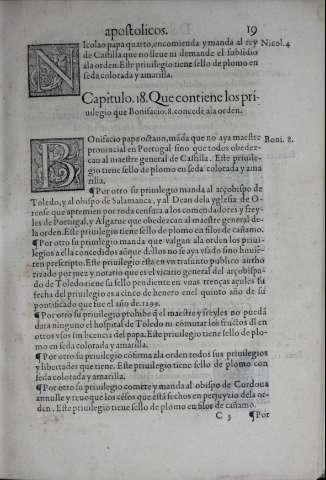 apostolicos. 19
Nicolao papa quarto, encomienda y manda al rey Nicol. 4
de Castilla que no lleue ni demande el subsidio
ala orden. Este priuilegio tiene sello de plomo en
seda colorada y amarilla.
Capitulo. 18. Que contiene los pri-
uilegio que Bonifacio. 8. concede ala orden.
Bonifacio papa octauo, mãda que no aya maestre Boni. 8.
prouincial en Portugal sino que todos obedez-
can al maestre general de Castilla. Este priuile-
gio tiene sello de plomo en seda colorada y ama
rilla.
¶ Por otro su priuilegio manda al arçobispo de
Toledo, y al obispo de Salamanca, y al Dean dela yglesia de O-
rense que apremien por toda censura a los comendadores y frey-
les de Portugal, y Algarue que obedezcan al maestre general de-
la orden. Este priuilegio tiene sello de plomo en filos de cañamo.
¶ Por otro su priuilegio manda que valgan ala orden los priui-
legios a ella concedidos aũque dellos no se aya vsado sino houie-
ren prescripto. Este priuilegio esta en vn trasunto publico autho
rizado por juez y notario que es el vicario general del arçobispa-
do de Toledo tiene su sello pendiente en vnas trenças azules su
fecha del priuilegio es a cinco de henero enel quinto año de su
pontificado que fue el año de. 1299.
¶ Por otro su priuilegio prohibe q̃ el maestre y freyles no puedã
dar a ninguno el hospital de Toledo ni comutar los fructos dl en
otros vsos sin licencia del papa. Este priuilegio tiene sello de plo-
mo en seda colorada y amarilla.
¶ Por otro su priuilegio cõfirma ala orden todos sus priuilegios
y libertades que tiene. Este priuilegio tiene sello de plomo con
seda colorada y amarilla.
¶ Por otro su priuilegio comete y manda al obispo de Cordoua
annulle y reuoque los cẽsos que está fechos en perjuyzio dela or-
den. Este priuilegio tiene sello de plomo en filos de cañamo.
C 3 ¶ Por